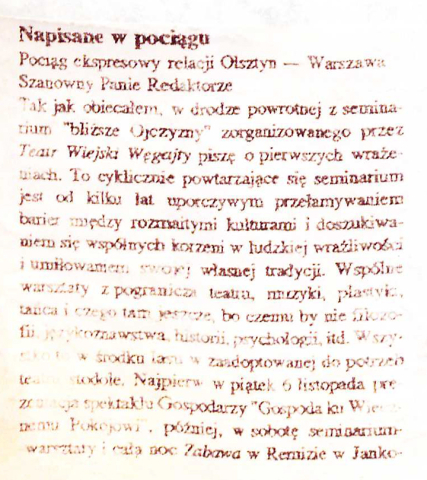 Napisane w pociągu
Pociąg ekspresowy relacji Olsztyn — Warszawa
Szanowny Panie Redaktorze
Tak jak obiecałem, w drodze powrotnej z semina-
rium "bliższe Ojczyzny" zorganizowanego przez
Teatr Wiejski Węgajty piszę o pierwszych wraże-
niach. To cyklicznie powtarzające się seminarium
jest od kilku lat uporczywym przełamywaniem
barier między rozmaitymi kulturami i doszukiwa-
niem się wspólnych korzeni w ludzkiej wrażliwości
i umiłowaniem swojej własnej tradycji. Wspólne
warsztaty z pogranicza teatru, muzyki, plastyki,
tańca i czego tam jeszcze, bo czemu by nie filozo-
fii, językoznawstwa, historii, psychologii, itd. Wszy-
w środku lasu w zaadoptowanej do potrzeb
teatru stodole. Najpierw w piątek 6 listopada pre-
zentacja spektaklu Gospodarzy "Gospoda ku Wiecz-
nemu Pokojowi", później, w sobotę seminarium-
warsztaty i całą noc Zabawa w Remizie w Janko-